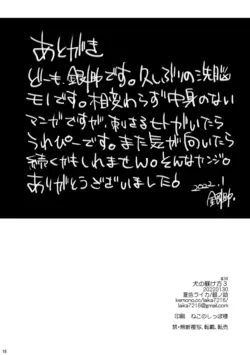 あとがき
どーも、銀助です。久しぶりの洗脳
モノです。相変わらず中身のない
マンガですが、刺さるヒトがいたら
うれぴーです。また気が向いたら
続くかもしれませんw。そんなカンジ。
ありがとうございました。
2022.1
銀助.
犬の躾け方3
20220130
kemono.co/laika7216
laika7216@gmail.com
印刷 ねこのしっぽ様
禁・無断複写、転載、転売